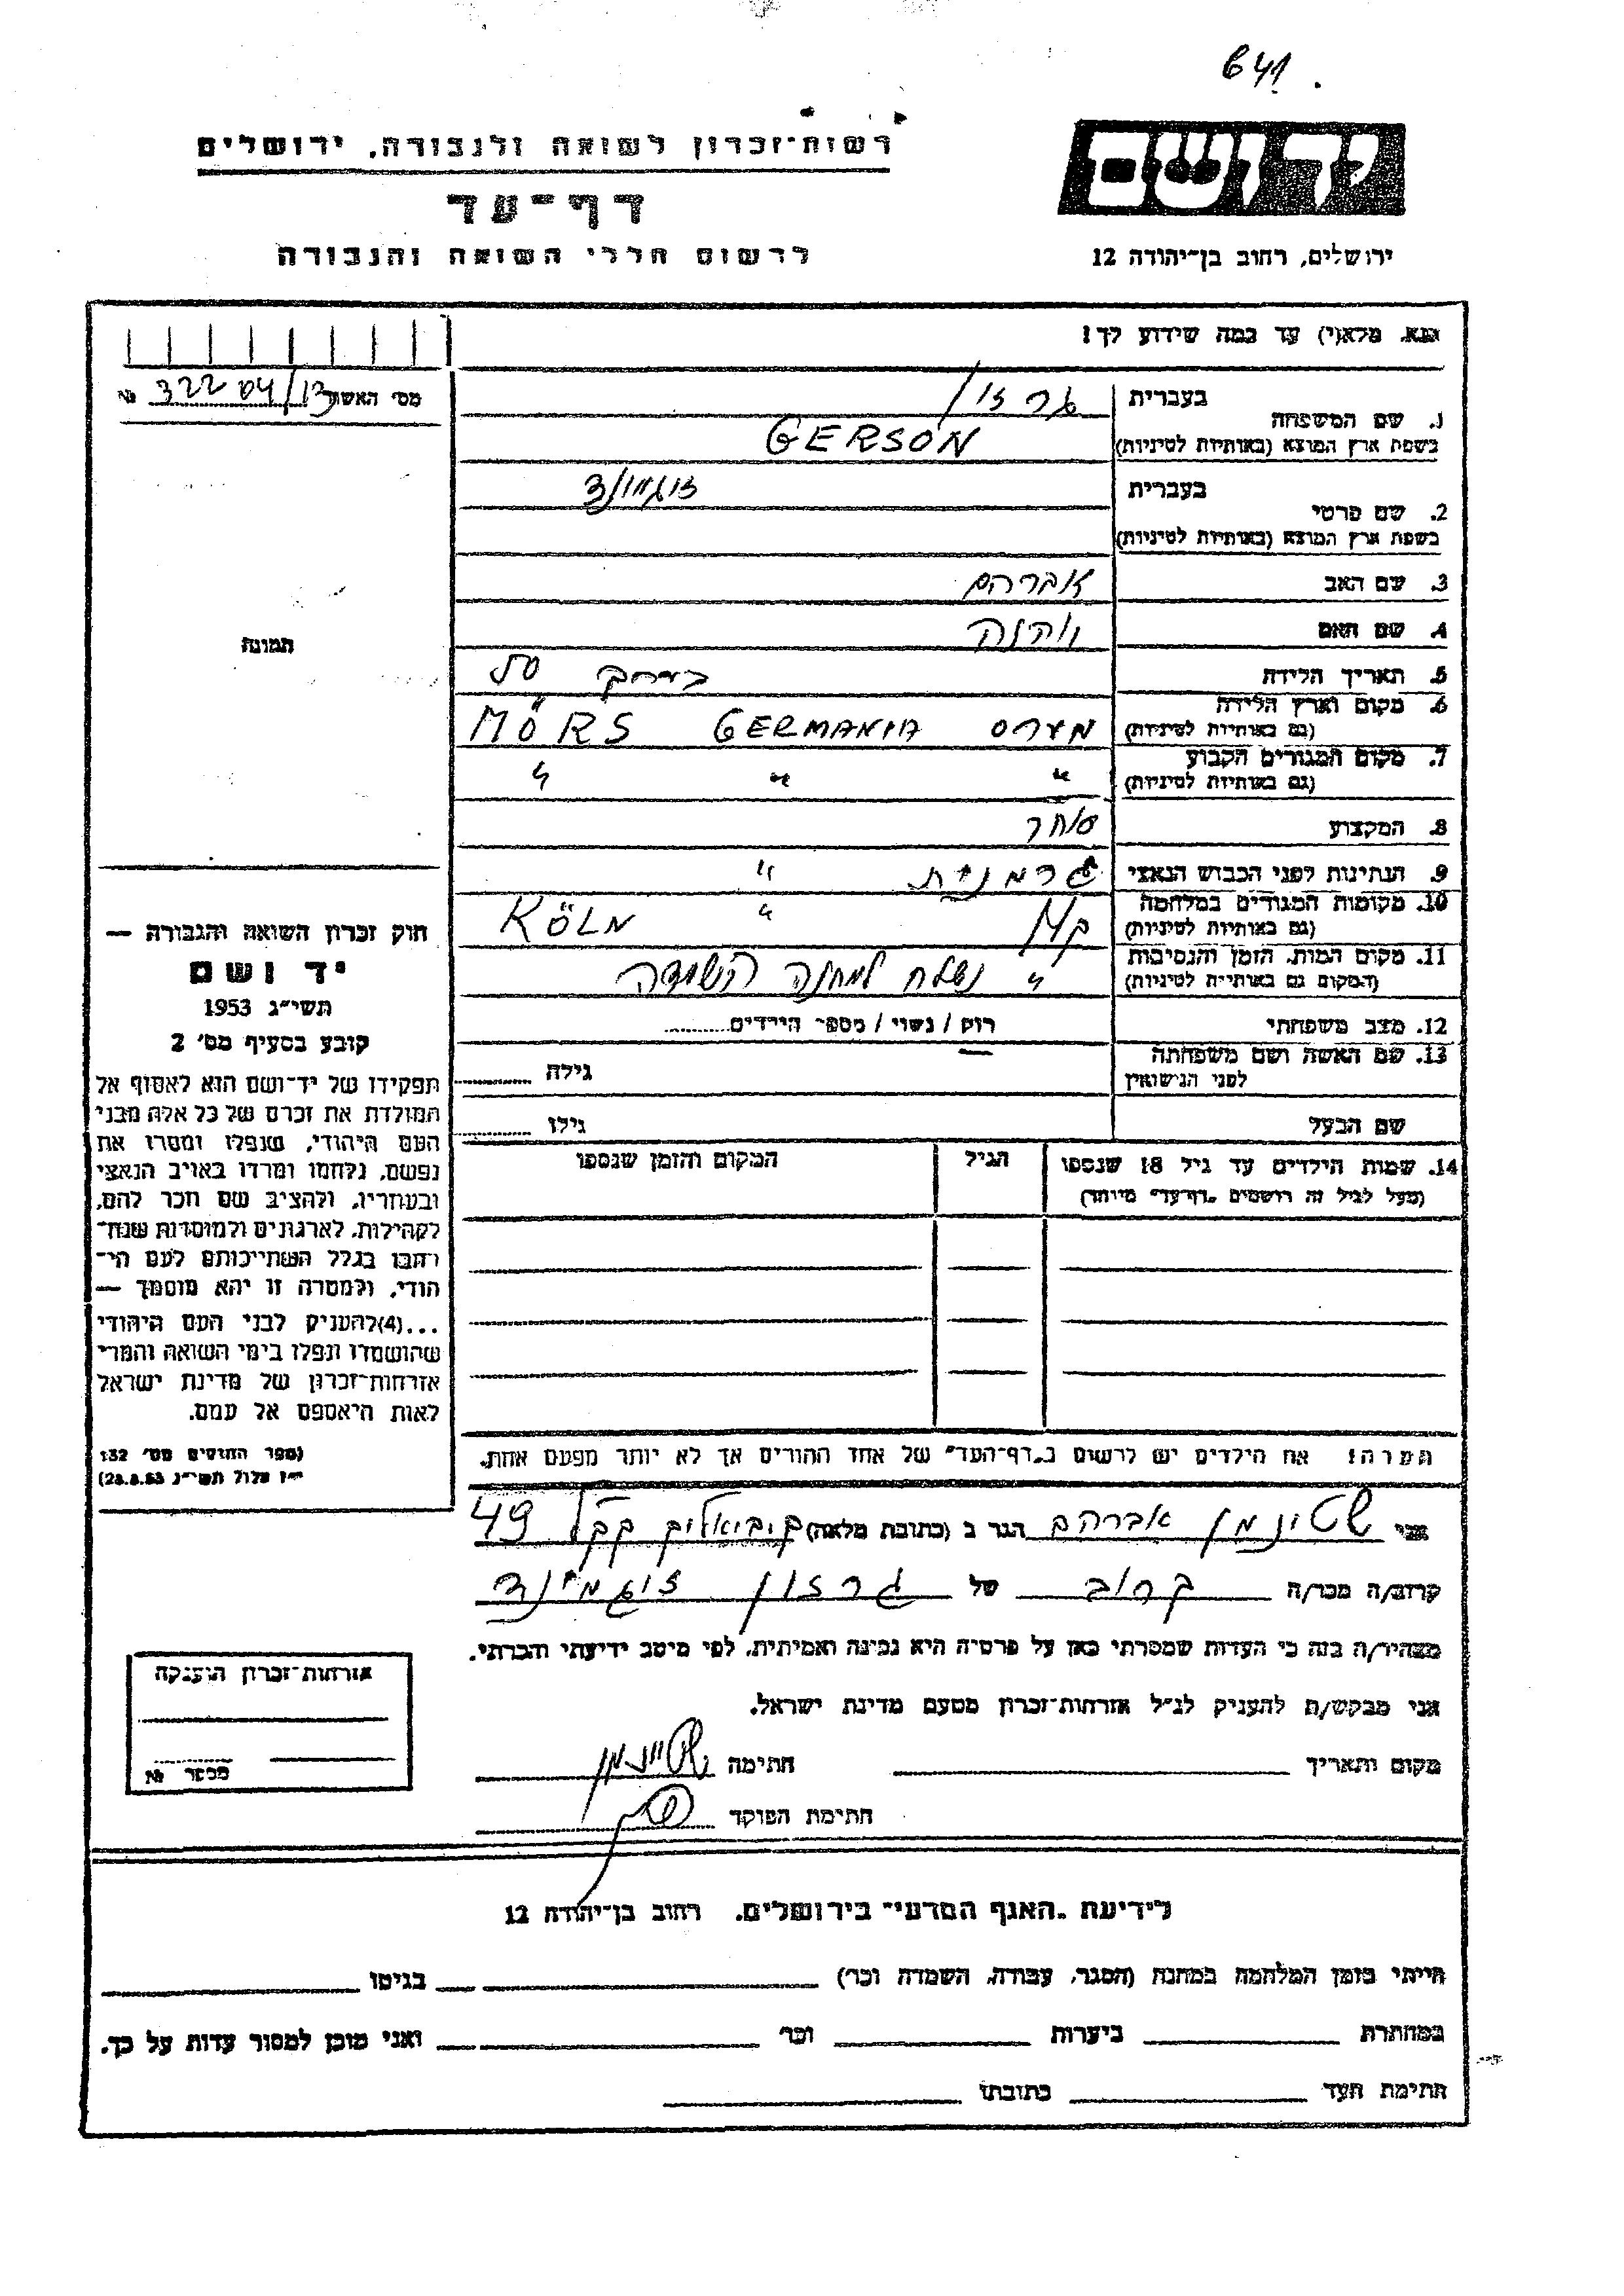 641
רשות־זכרון לשואה ולגבורה, ירושלים
יד ושם
דף־עד
לרשום חללי השואה והגבורה
ירושלים, רחוב בן־יהודה 12
נא מלא(י) עד כמה שידוע לך!
מס׳ האשור 322 04/13 №
1. שם המשפחה
בעברית גרזון
בשפת ארץ המוצא (באותיות לטיניות) GERSON
2. שם פרטי
בעברית זוגמונד
בשפת ארץ המוצא (באותיות לטיניות)
3. שם האב אברהם
4. שם האם
5. תאריך הלידה בערך
6. מקום וארץ הלידה
(גם באותיות לטיניות) מערס GERMANIA MÖRS
7. מקום המגורים הקבוע
(גם באותיות לטיניות) " " "
8. המקצוע סוחר
9. הנתינות לפני הכבוש הנאצי גרמנית "
10. מקומות המגורים במלחמה
(גם באותיות לטיניות) " KÖLN
11. מקום המות, הזמן והנסיבות
(המקום גם באותיות לטיניות) " נשלח למחנה השמדה
12. מצב משפחתי רווק / נשוי / מספר הילדים
13. שם האשה ושם משפחתה
לפני הנישואין גילה
שם הבעל גילו
14. שמות הילדים עד גיל 18 שנספו הגיל המקום והזמן שנספו
(מעל לגיל זה רושמים "דף־עד" מיוחד)
הערה! את הילדים יש לרשום ב"דף־העד" של אחד ההורים אך לא יותר מפעם אחת.
תמונה
חוק זכרון השואה והגבורה —
יד ושם
תשי״ג 1953
קובע בסעיף מס׳ 2
תפקידו של יד־ושם הוא לאסוף אל
המולדת את זכרם של כל אלה מבני
העם היהודי, שנפלו ומסרו את
נפשם, נלחמו ומרדו באויב הנאצי
ובעוזריו, ולהציב שם וזכר להם,
לקהילות, לארגונים ולמוסדות שנח־
רבו בגלל השתייכותם לעם הי־
הודי, ולמטרה זו יהא מוסמך —
...(4)להעניק לבני העם היהודי
שהושמדו ונפלו בימי השואה והמרי
אזרחות־זכרון של מדינת ישראל
לאות היאספם אל עמם.
(ספר החוקים מס׳ 132
י״ז אלול תשי״ג 28.8.53)
אני שטינמן אברהם הגר ב (כתובת מלאה) ק׳ ביאליק קק״ל 49
קרוב/ה מכר/ה קרוב של גרזון זוגמונד
מצהיר/ה בזה כי העדות שמסרתי כאן על פרטיה היא נכונה ואמיתית, לפי מיטב ידיעתי והכרתי.
אני מבקש/ת להעניק לנ״ל אזרחות־זכרון מטעם מדינת ישראל.
מקום ותאריך חתימה שטיינמן
חתימת הפוקד
אזרחות־זכרון הוענקה
מספר №
לידיעת "האגף המדעי" בירושלים, רחוב בן־יהודה 12
הייתי בזמן המלחמה במחנה (הסגר, עבודה, השמדה וכו׳) בגיטו
במחתרת ביערות וכו׳ ואני מוכן למסור עדות על כך.
חתימת העד כתובתו